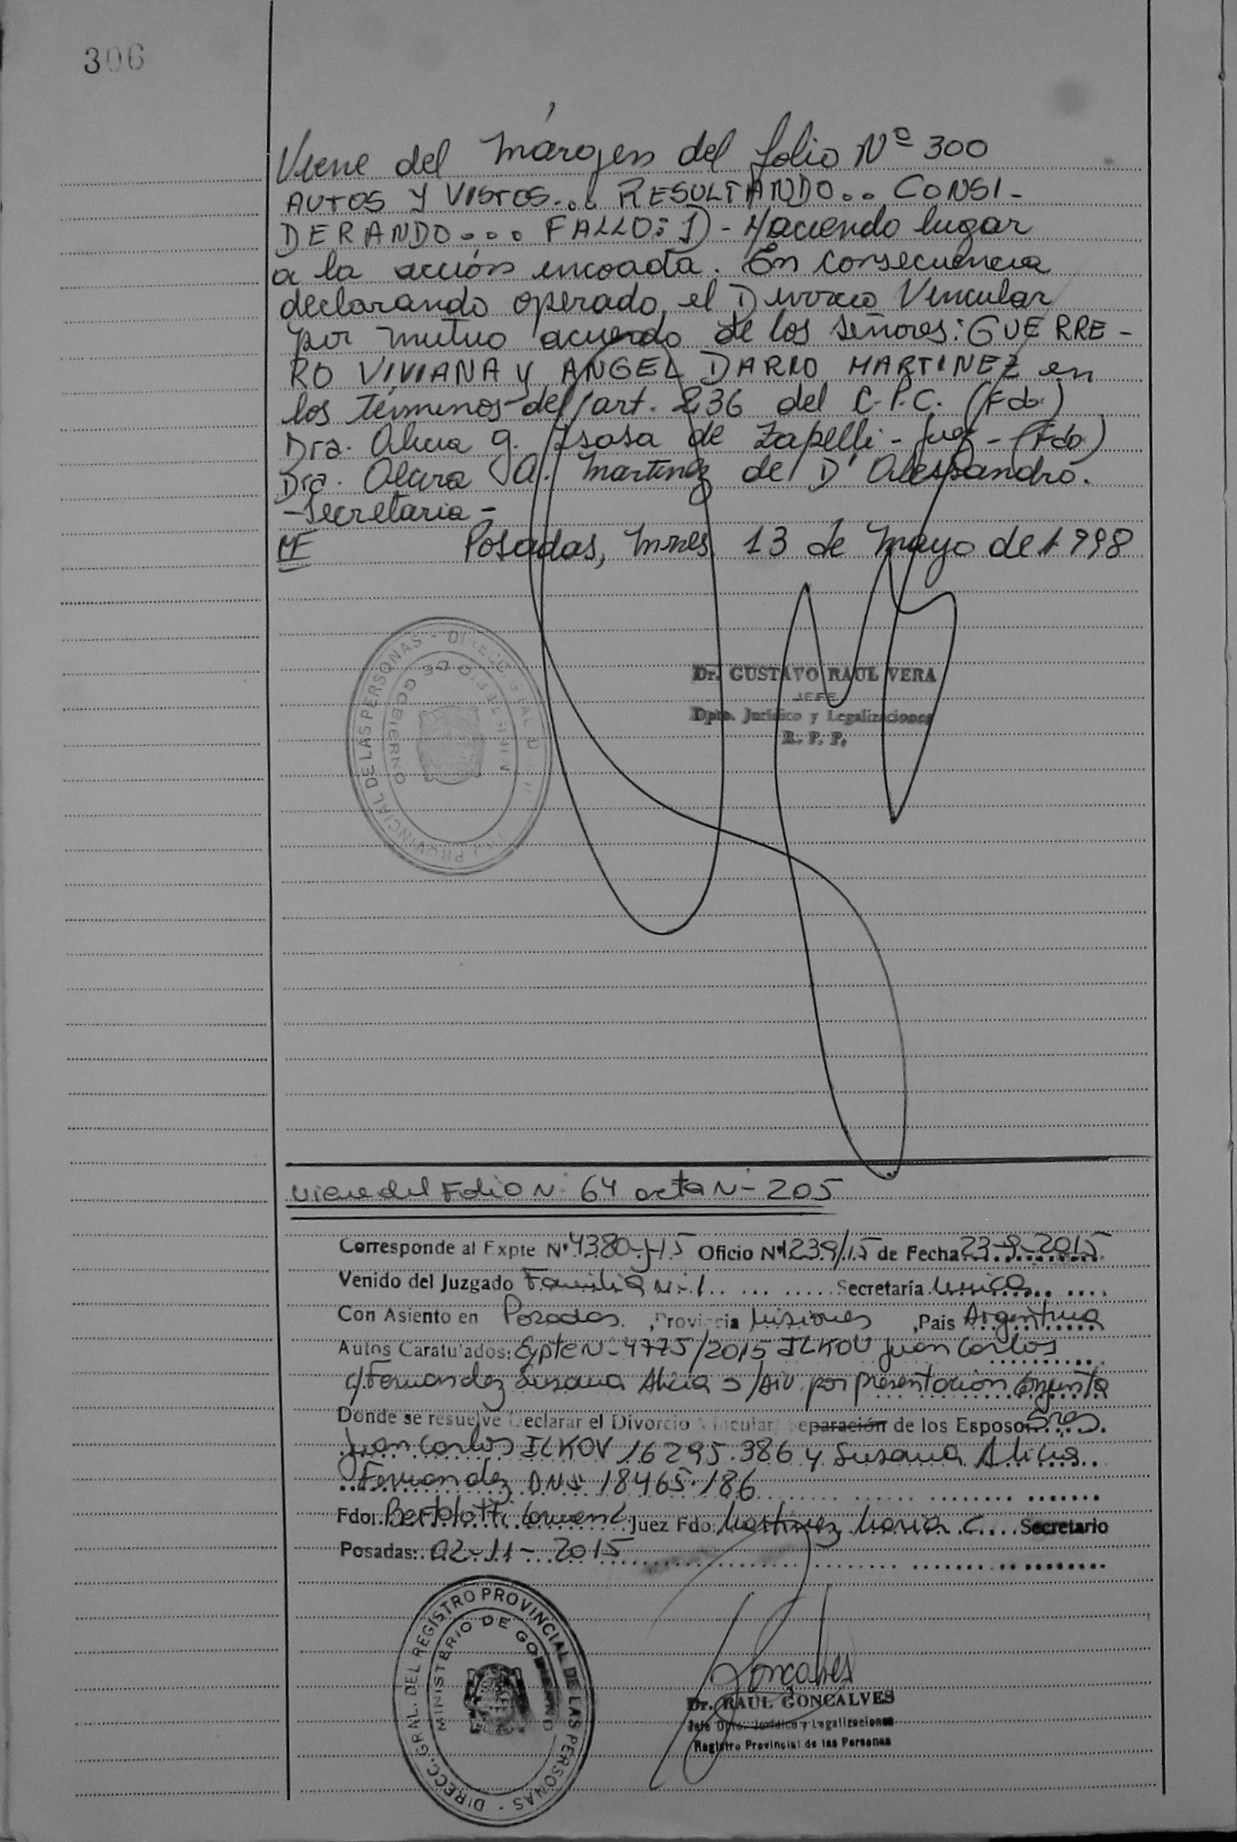 306
Viene del márgen del folio Nº 300
AUTOS Y VISTOS... RESULTANDO.. CONSI-
DERANDO... FALLO: 1) - Haciendo lugar
a la acción incoada. En consecuencia
declarando operado el Divorcio Vincular
por mutuo acuerdo de los señores: GUERRE-
RO VIVIANA y ANGEL DARIO MARTINEZ en
los términos del art. 236 del C.P.C. (Fdo)
Dra. Alicia G. Isasa de Zapelli - Juez - (Fdo)
Dra. A. Martinez de D'Alessandro.
- Secretaria -
Posadas, Mnes 13 de Mayo de 1998
DIRECC GRAL PROVINCIAL DE LAS PERSONAS
MINISTERIO DE GOBIERNO
Dr. GUSTAVO RAUL VERA
JEFE
Dpto. Jurídico y Legalizaciones
R. P. P.
Viene del Folio Nº 64 acta Nº 205
Corresponde al Expte Nº 4380-J-15 Oficio Nº 1239/15 de Fecha 23-9-2015
Venido del Juzgado Familia Nº 1 Secretaría Unica
Con Asiento en Posadas, Provincia Misiones, País Argentina
Autos Caratulados: Expte Nº 4775/2015 ILKOV Juan Carlos
c/Fernandez Susana Alicia s/Div. por presentación conjunta
Donde se resuelve Declarar el Divorcio Vincular/Separación de los Esposos Sres.
Juan Carlos ILKOV 16295.386 y Susana Alicia
Fernandez DNI 18465.186
Fdo: Bertolotti Juez Fdo: Martinez Maria C. Secretario
Posadas: 02-11-2015
DIRECC. GRAL. DEL REGISTRO PROVINCIAL DE LAS PERSONAS
MINISTERIO DE GOBIERNO
Goncalves
Dr. RAUL GONCALVES
Jefe Dpto. Jurídico y Legalizaciones
Registro Provincial de las Personas